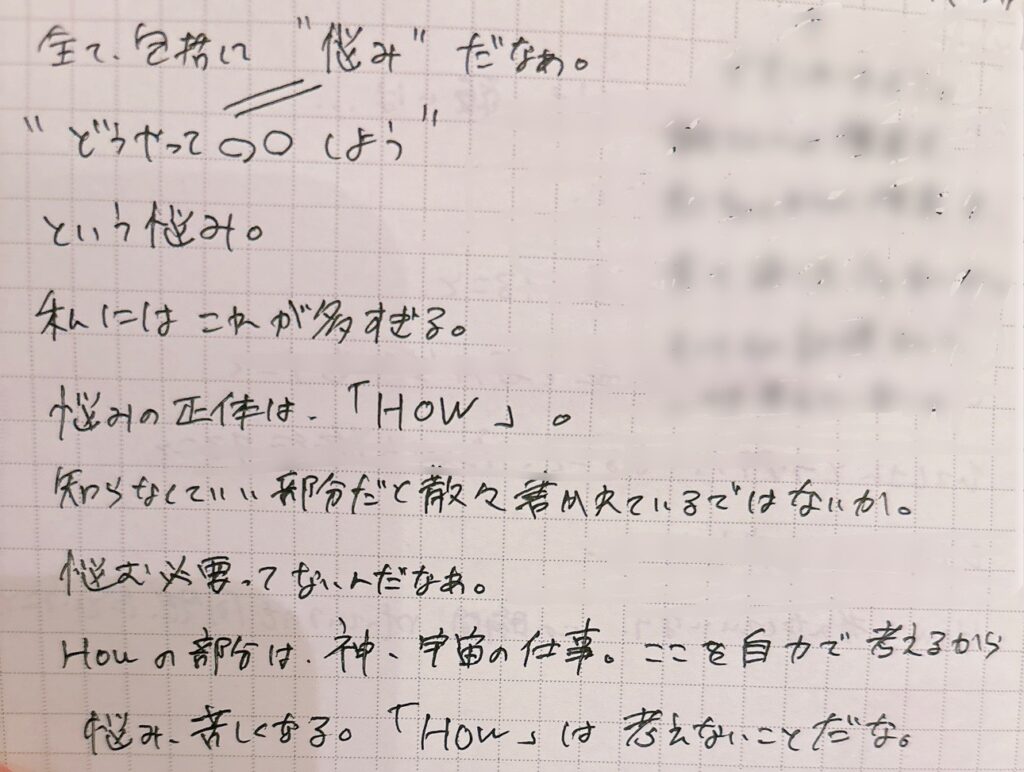 全て、包括して "悩み" だなぁ。
"どうやって〇〇しよう"
という悩み。
私にはこれが多すぎる。
悩みの正体は、「HOW」。
知らなくていい部分だと散々書いているではないか。
悩む必要ってないんだなぁ。
Howの部分は、神、宇宙の仕事。ここを自力で考えるから
悩み、苦しくなる。「How」は考えないことだな。